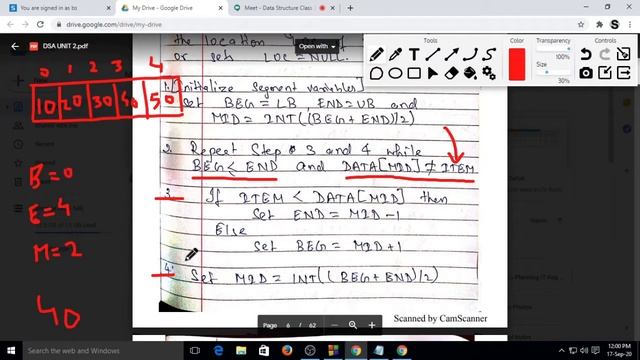 You are signed in as bs
My Drive - Google Drive
Meet - Data Structure Class
drive.google.com/drive/my-drive
DSA UNIT 2.pdf
Open with
Tools
Color
Transparency
100%
Size
30%
the location
or set LOC = NULL.
1. [Initialize segment variables]
Set BEG = LB, END = UB and
MID = INT((BEG+END)/2)
2. Repeat Step 3 and 4 while
BEG ≤ END and DATA[MID] ≠ ITEM
3. If ITEM < DATA[MID] then
Set END = MID-1
Else
Set BEG = MID+1
4. Set MID = INT((BEG+END)/2)
0 1 2 3 4
10 20 30 40 50
B=0
E=4
M=2
40
Scanned by CamScanner
Page 6 / 62
Search the web and Windows
12:00 PM
17-Sep-20